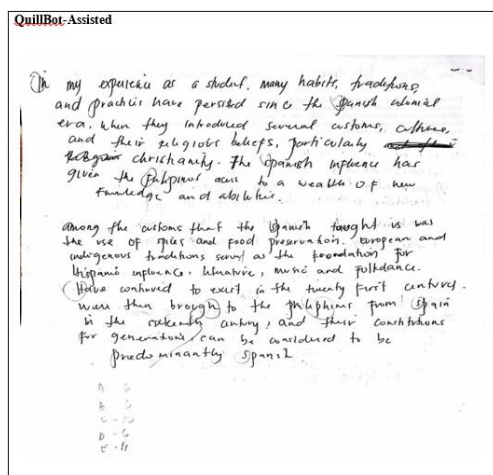 QuillBot-Assisted
In my experience as a student, many habits, traditions,
and practices have persisted since the Spanish colonial
era. When they introduced several customs, cultures,
and their religious beliefs, particularly
christianity. The Spanish influence has
given the Philipinos acess to a wealth of new
knowledge and abilities.
among the customs that the Spanish taught is was
the use of spices and food preservation. European and
indigenous traditions serve as the foundation for
hispanic influence. literature, music and folkdance.
Have continued to exist in the twenty first century.
were then brough to the philiphines from Spain
in the sixteenth century, and their constitutions
for generations, can be considered to be
predominantly Spanish.